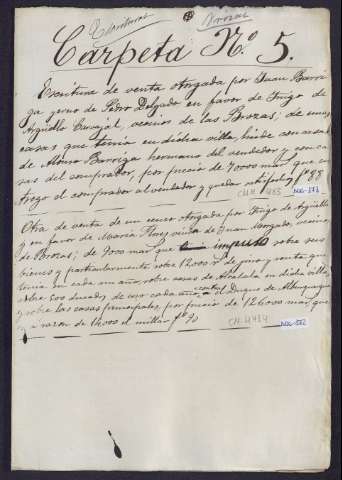 Escrituras Brozas
Carpeta Nº 5.
Escritura de venta otorgada por Juan Barri
ga yerno de Pedro Delgado en favor de Iñigo de
Argüello Carvajal, vecino de las Brozas, de unas
casas que tenia en dicha villa, linde con casas
de Alonso Barriga hermano del vendedor y con ca
sas del comprador, por precio de 70000 mar. que en
trego el comprador al vendedor y quedan
Otra de venta de un censo otorgada por Iñigo de Argüello
y en favor de Maria Flores viuda de Juan Morgado, vecina
de Brozas; de 9000 mar. que impuso sobre sus
bienes y particularmente sobre 12.000 de juro y renta que
tenia en cada un año, sobre casas de Alcabala en dicha villa,
sobre 500 ducados de censo cada año contra el Duque de Alburquerque
y sobre las casas principales, por precio de 126000 mar. que
y a razon de 14000 el millar fº 90